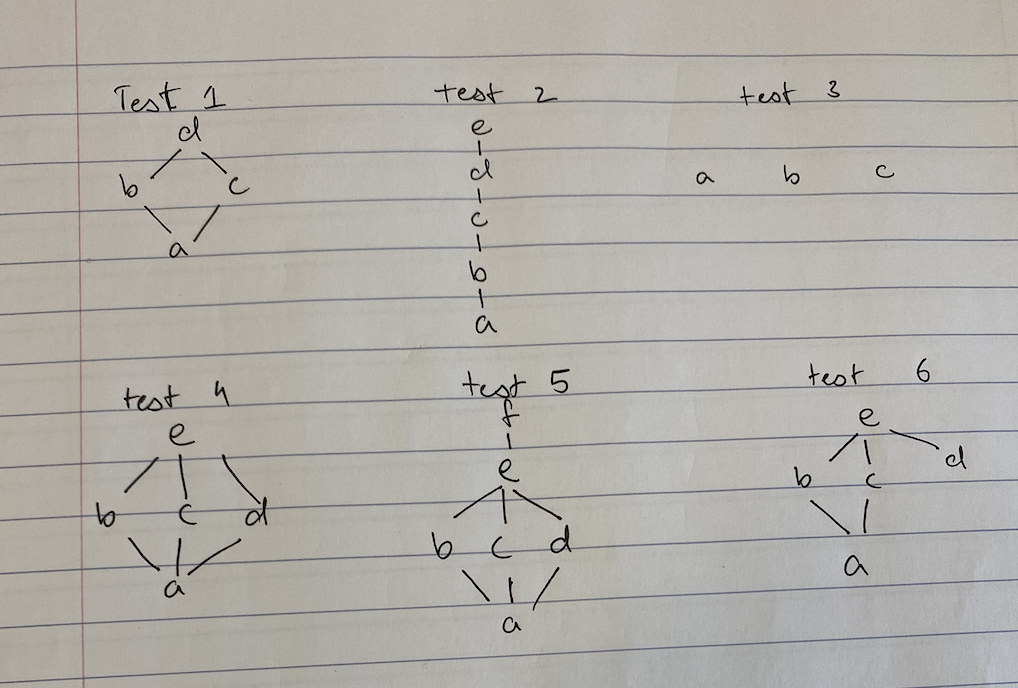 Test 1
d
b c
a
test 2
e
d
c
b
a
test 3
a b c
test 4
e
b c d
a
test 5
f
e
b c d
a
test 6
e
d
b c
a